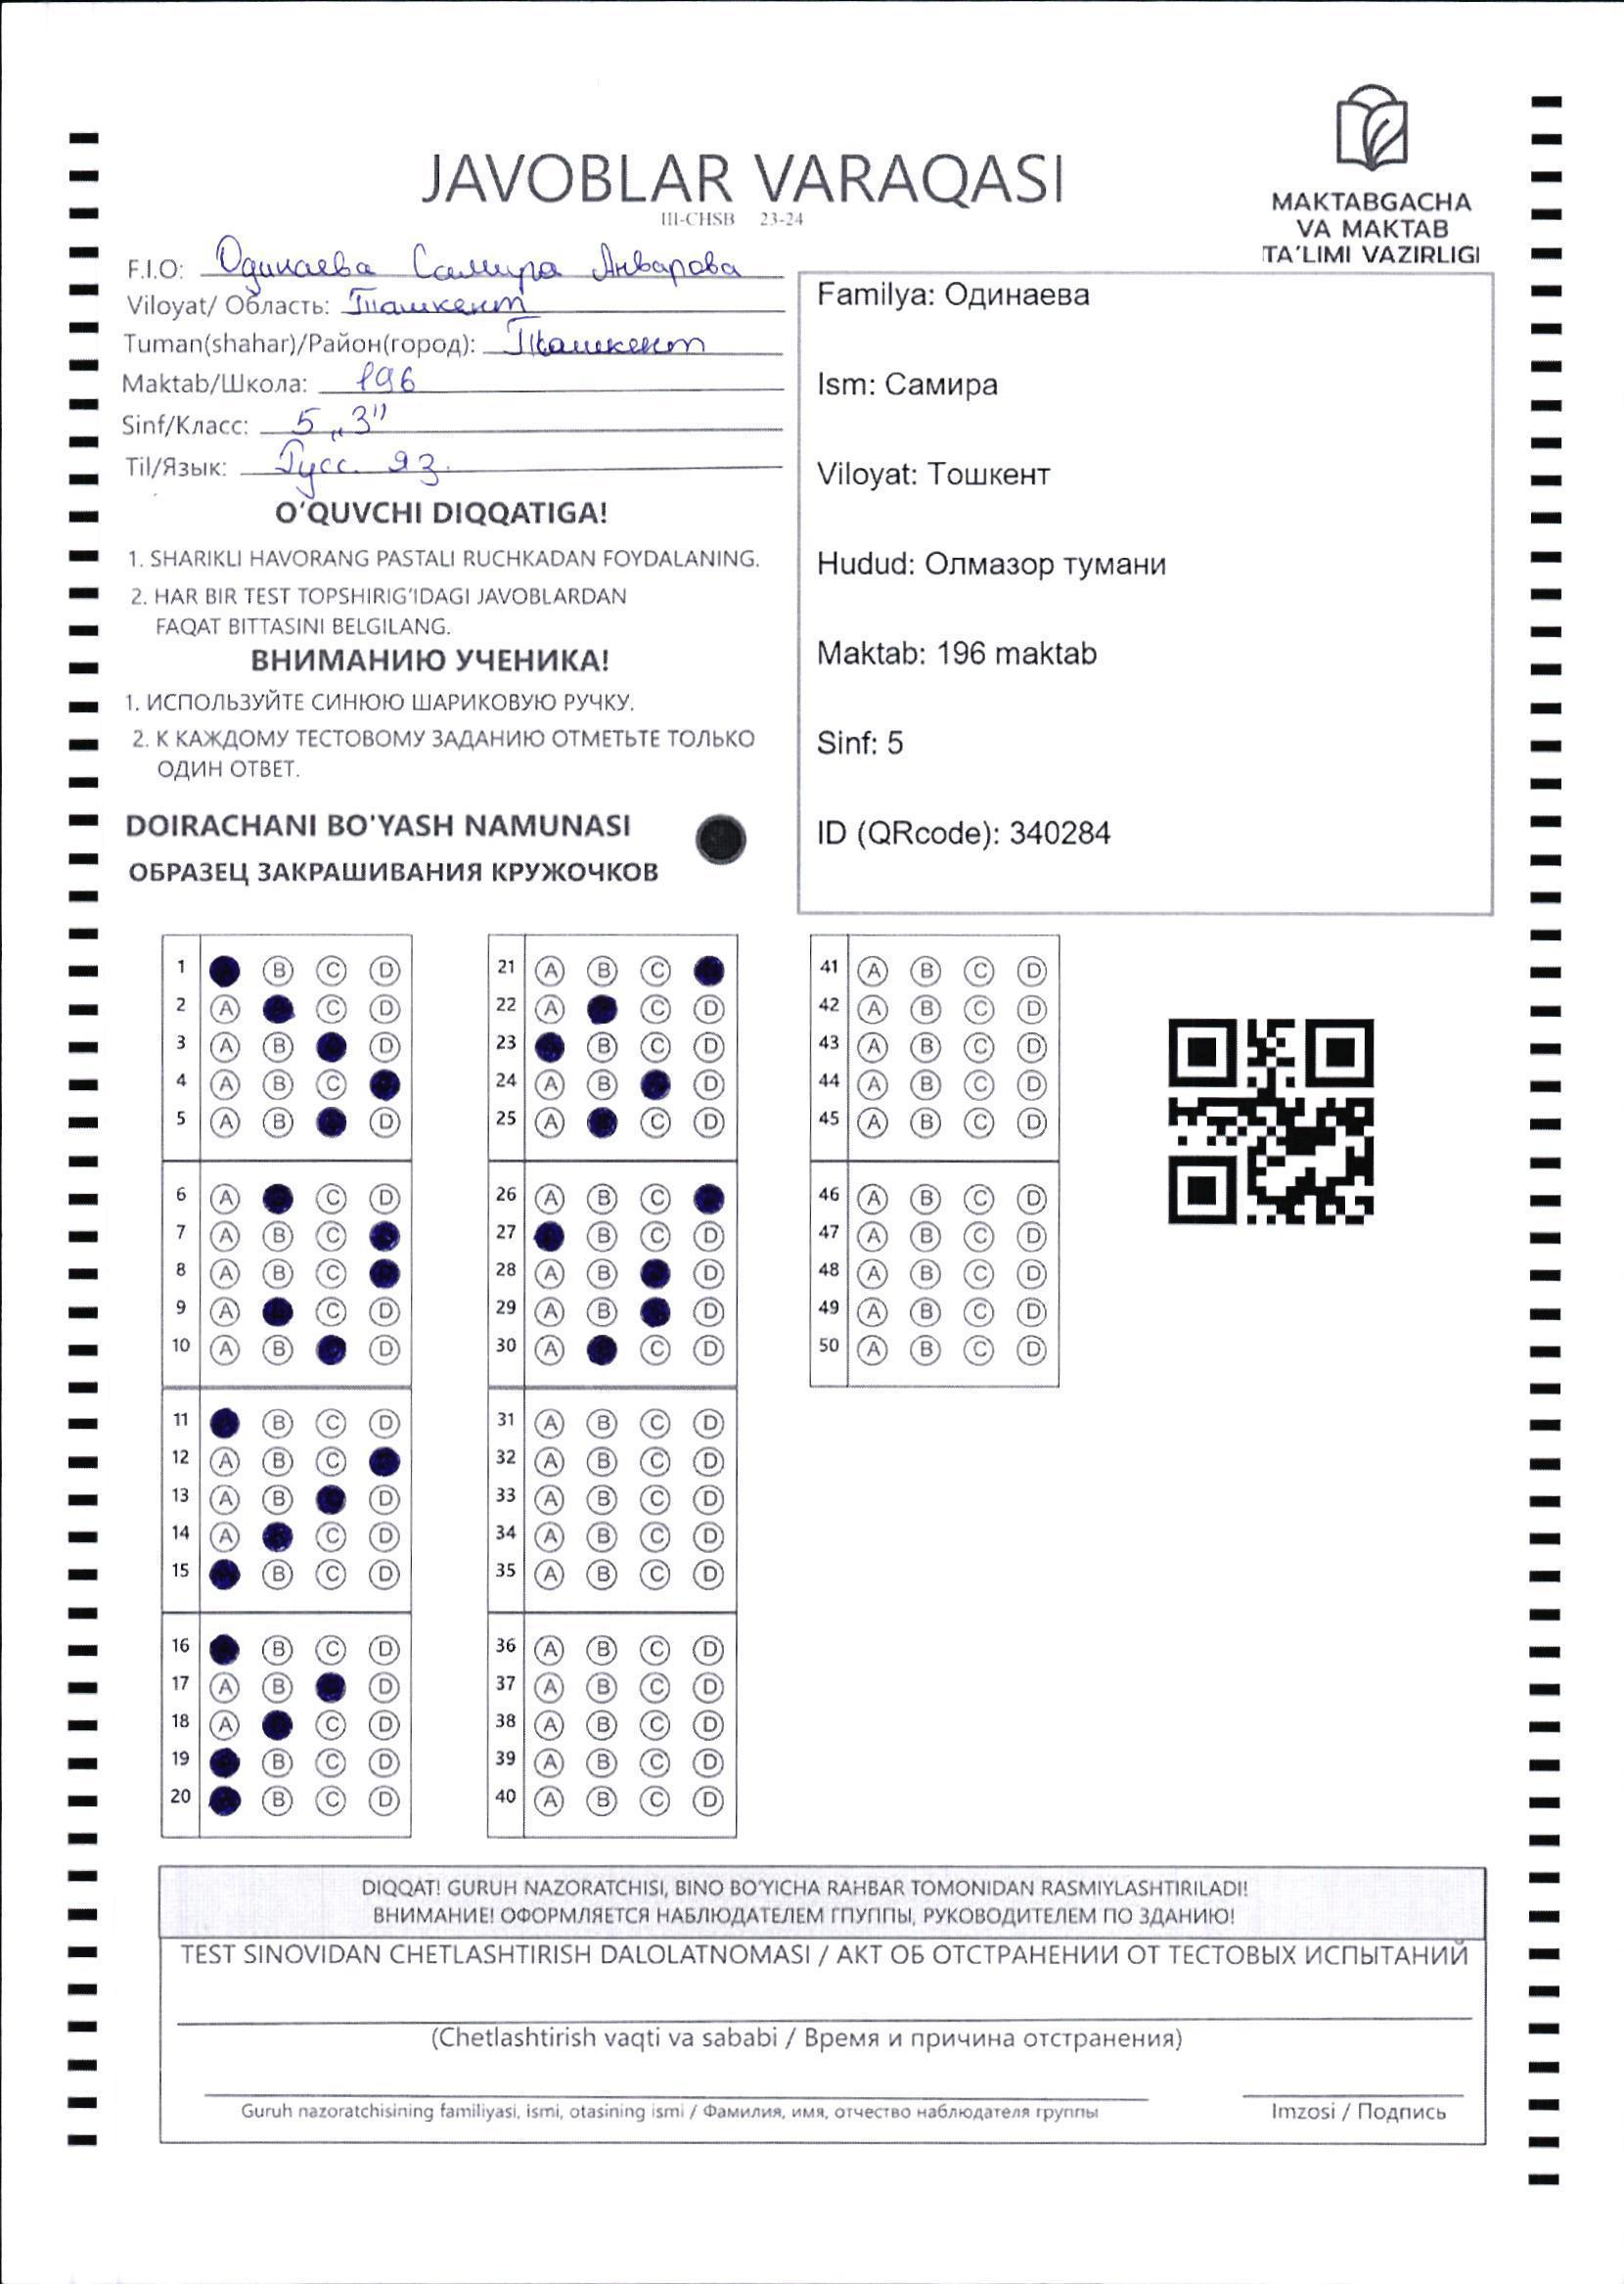 JAVOBLAR VARAQASI
III-CHSB 23-24
MAKTABGACHA
VA MAKTAB
TA'LIMI VAZIRLIGI
F.I.O: Одинаева Самира Анварова
Viloyat/ Область: Ташкент
Tuman(shahar)/Район(город): Ташкент
Maktab/Школа: 196
Sinf/Класс: 5 „З"
Til/Язык: Русс. яз.
O'QUVCHI DIQQATIGA!
1. SHARIKLI HAVORANG PASTALI RUCHKADAN FOYDALANING.
2. HAR BIR TEST TOPSHIRIG'IDAGI JAVOBLARDAN
FAQAT BITTASINI BELGILANG.
ВНИМАНИЮ УЧЕНИКА!
1. ИСПОЛЬЗУЙТЕ СИНЮЮ ШАРИКОВУЮ РУЧКУ.
2. К КАЖДОМУ ТЕСТОВОМУ ЗАДАНИЮ ОТМЕТЬТЕ ТОЛЬКО
ОДИН ОТВЕТ.
DOIRACHANI BO'YASH NAMUNASI
ОБРАЗЕЦ ЗАКРАШИВАНИЯ КРУЖОЧКОВ
Familya: Одинаева
Ism: Самира
Viloyat: Тошкент
Hudud: Олмазор тумани
Maktab: 196 maktab
Sinf: 5
ID (QRcode): 340284
1 B C D
2 A C D
3 A B D
4 A B C
5 A B D
6 A C D
7 A B C
8 A B C
9 A C D
10 A B D
11 B C D
12 A B C
13 A B D
14 A C D
15 B C D
16 B C D
17 A B D
18 A C D
19 B C D
20 B C D
21 A B C
22 A C D
23 B C D
24 A B D
25 A C D
26 A B C
27 B C D
28 A B D
29 A B D
30 A C D
31 A B C D
32 A B C D
33 A B C D
34 A B C D
35 A B C D
36 A B C D
37 A B C D
38 A B C D
39 A B C D
40 A B C D
41 A B C D
42 A B C D
43 A B C D
44 A B C D
45 A B C D
46 A B C D
47 A B C D
48 A B C D
49 A B C D
50 A B C D
DIQQAT! GURUH NAZORATCHISI, BINO BO'YICHA RAHBAR TOMONIDAN RASMIYLASHTIRILADI!
ВНИМАНИЕ! ОФОРМЛЯЕТСЯ НАБЛЮДАТЕЛЕМ ГПУППЫ, РУКОВОДИТЕЛЕМ ПО ЗДАНИЮ!
TEST SINOVIDAN CHETLASHTIRISH DALOLATNOMASI / АКТ ОБ ОТСТРАНЕНИИ ОТ ТЕСТОВЫХ ИСПЫТАНИЙ
(Chetlashtirish vaqti va sababi / Время и причина отстранения)
Guruh nazoratchisining familiyasi, ismi, otasining ismi / Фамилия, имя, отчество наблюдателя группы
Imzosi / Подпись